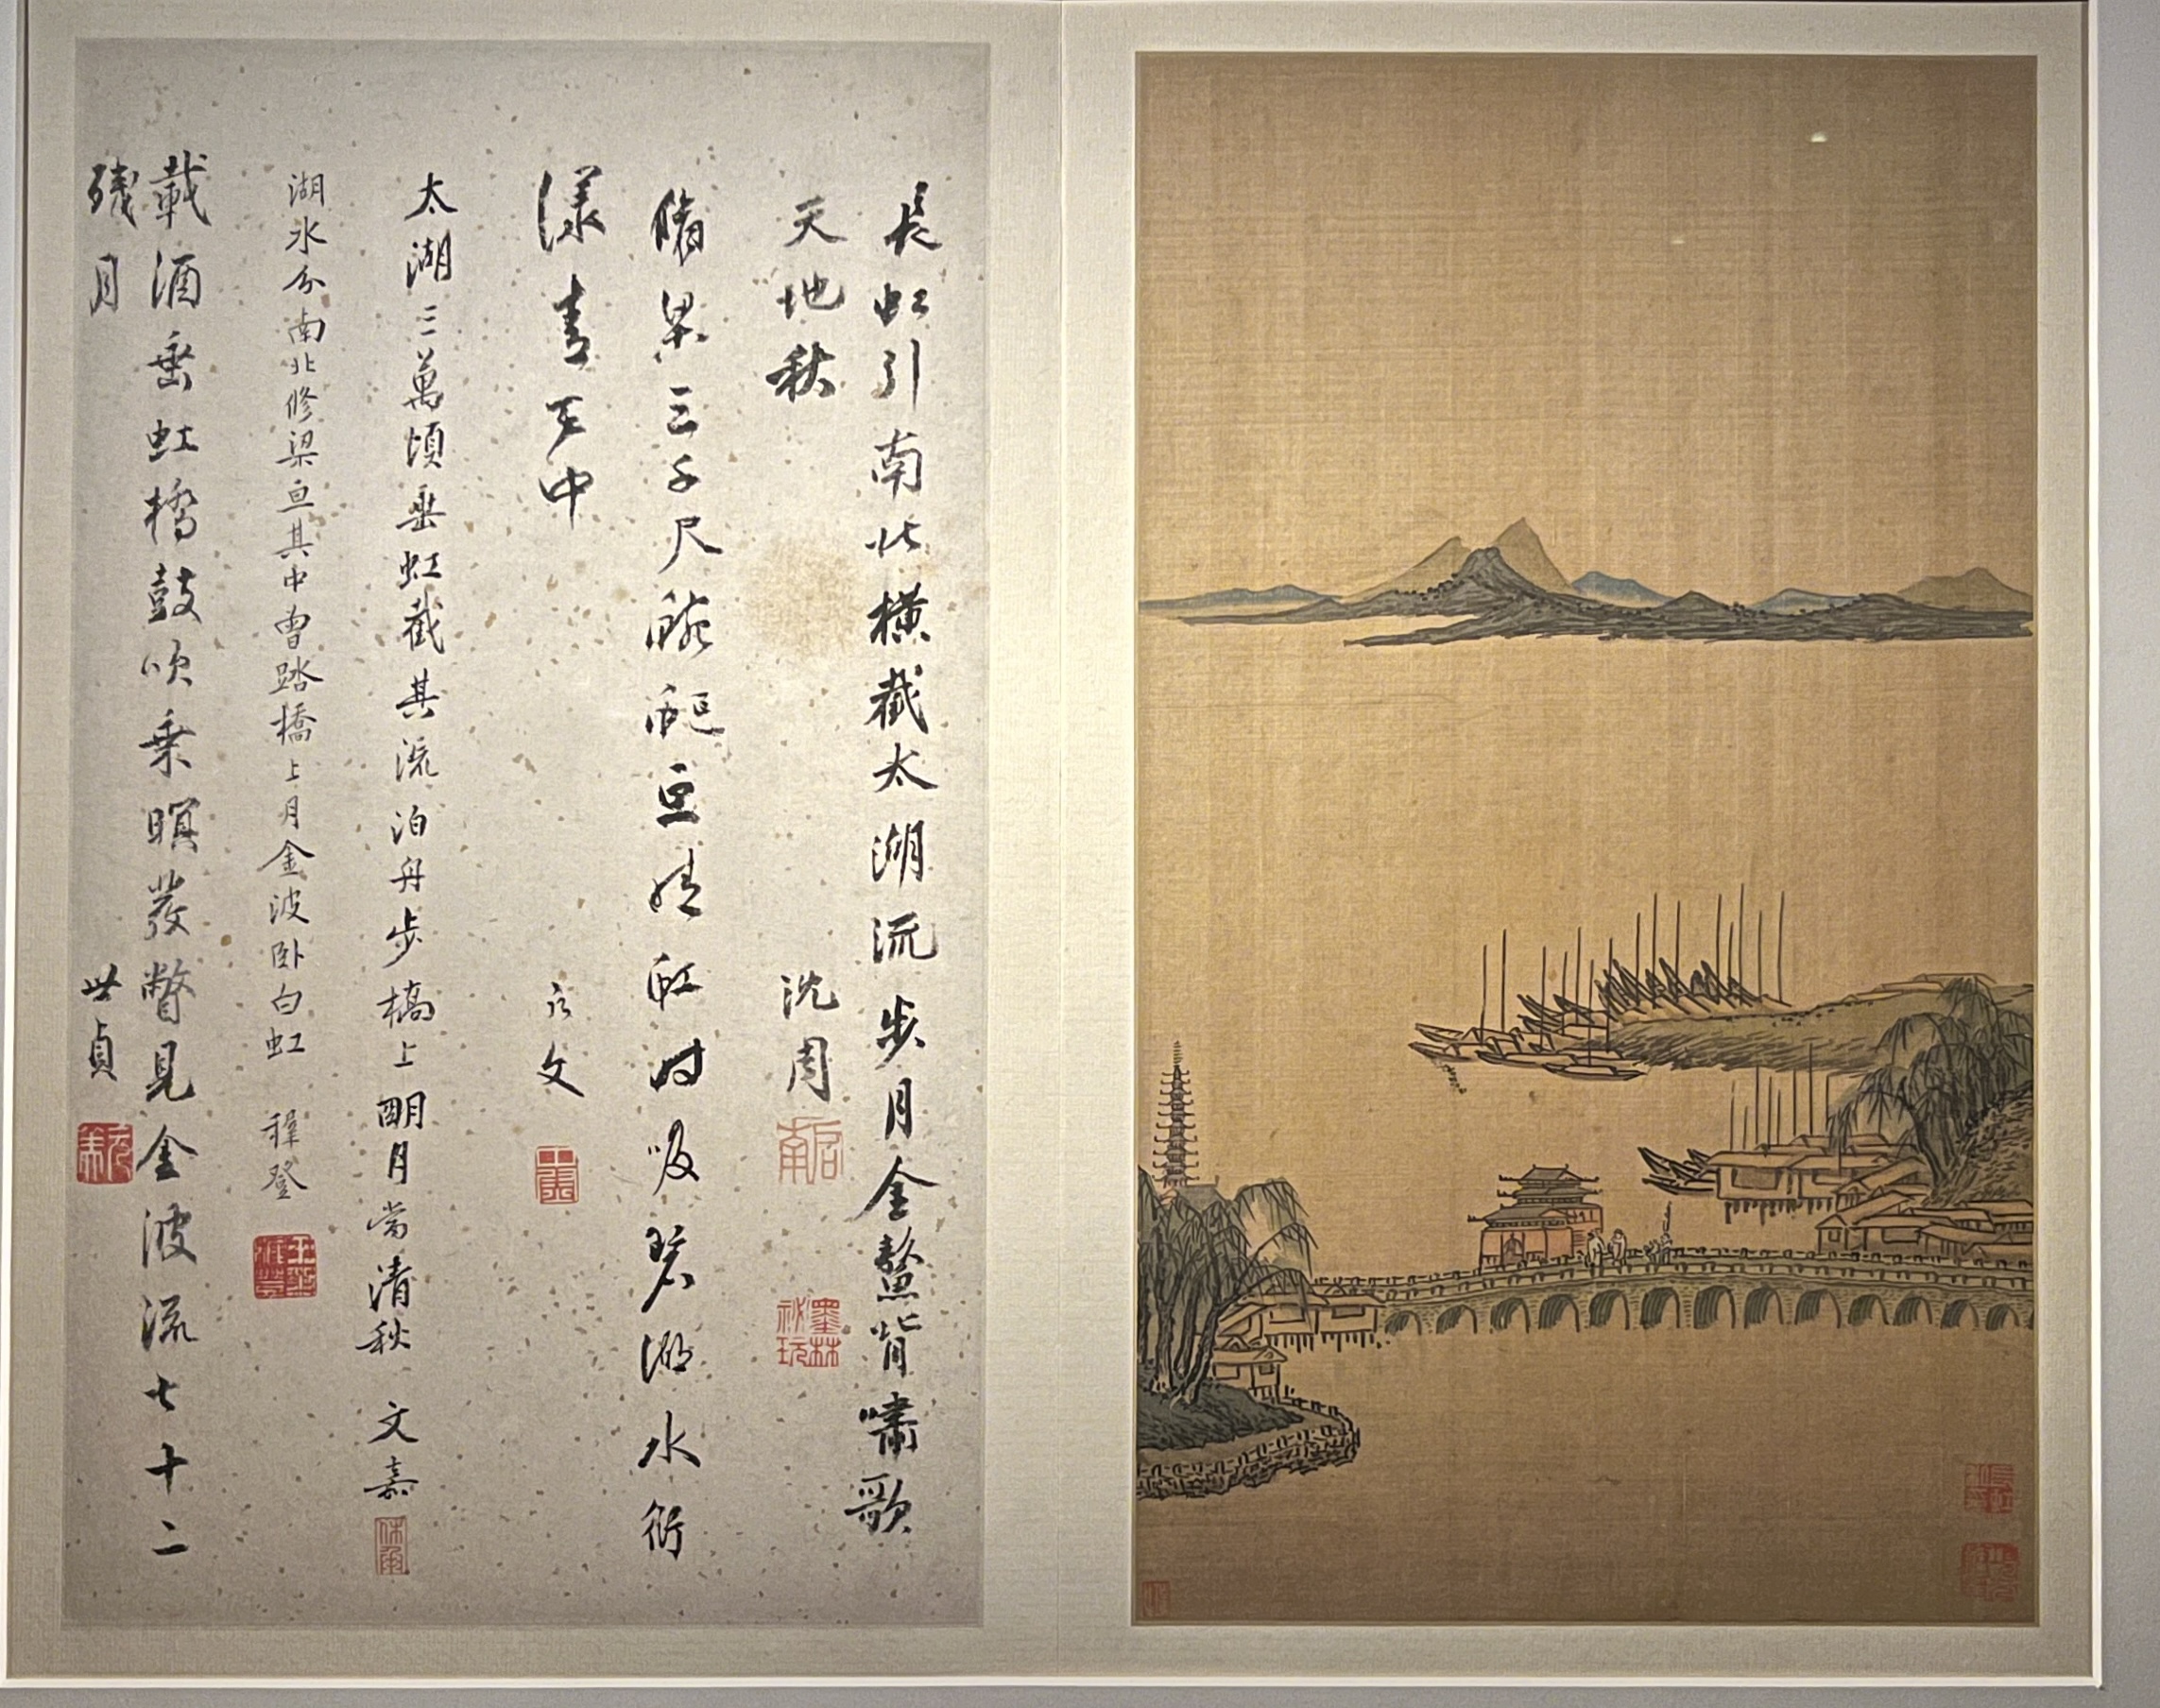 長虹引南北橫截太湖流步月金鰲背嘯歌
天地秋
沈周
啟南
墨林秘玩
脩梁三千尺蜿蜒亘
虹時吸碧湖水衍
漾青天中
文
太湖三萬頃垂虹截其流泊舟步橋上明月當清秋 文嘉
休承
湖水分南北修梁亘其中曾踏橋上月金波臥白虹 穉登
載酒垂虹橋鼓吹乘暝發瞥見金波流七十二
殘月
世貞
元美